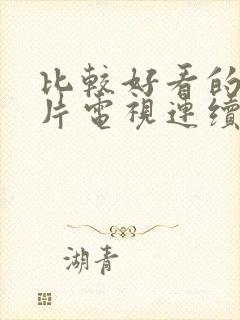 比較好看的
片電視連續
湖青